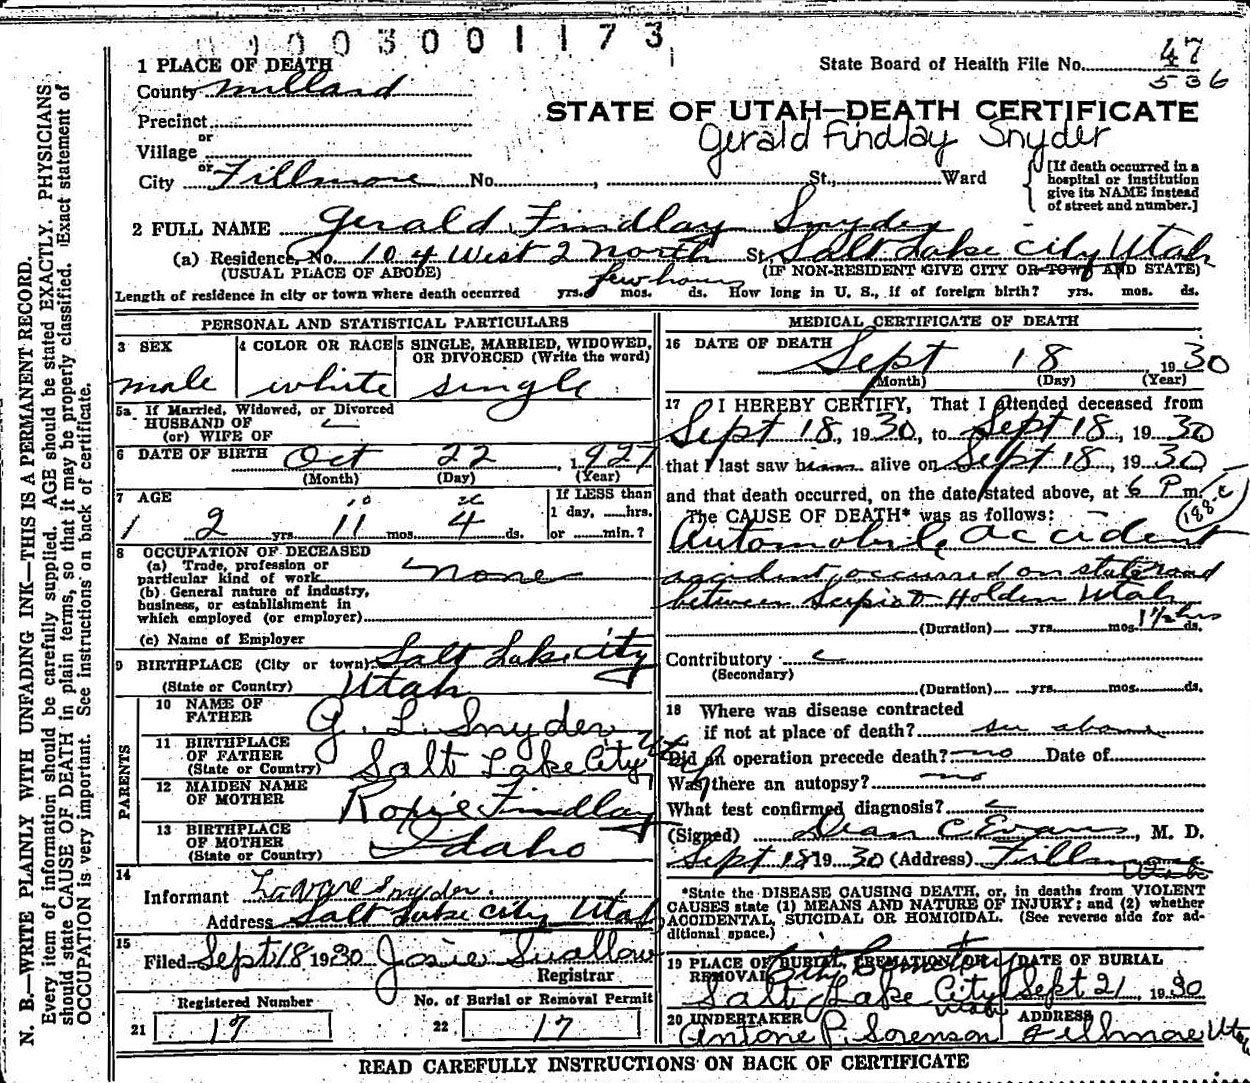 003001173
1 PLACE OF DEATH
State Board of Health File No. 47
536
County Millard
STATE OF UTAH—DEATH CERTIFICATE
Gerald Findlay Snyder
Precinct
or
Village
or
City Fillmore No. , St., Ward
[If death occurred in a
hospital or institution
give its NAME instead
of street and number.]
2 FULL NAME Gerald Findlay Snyder
(a) Residence, No. 104 West 2 North St. Salt Lake City Utah
(USUAL PLACE OF ABODE) (IF NON-RESIDENT GIVE CITY OR TOWN AND STATE)
few hours
Length of residence in city or town where death occurred yrs. mos. ds. How long in U. S., if of foreign birth? yrs. mos. ds.
PERSONAL AND STATISTICAL PARTICULARS
3 SEX 4 COLOR OR RACE 5 SINGLE, MARRIED, WIDOWED,
OR DIVORCED (Write the word)
male white single
5a If Married, Widowed, or Divorced
HUSBAND OF
(or) WIFE OF
6 DATE OF BIRTH Oct 22, 1927
(Month) (Day) (Year)
7 AGE If LESS than
10 26
1 day, hrs.
1 2 yrs. 11 mos. 4 ds. or min.?
8 OCCUPATION OF DECEASED
(a) Trade, profession or
particular kind of work none
(b) General nature of industry,
business, or establishment in
which employed (or employer)
(c) Name of Employer
9 BIRTHPLACE (City or town) Salt Lake City
(State or Country) Utah
PARENTS
10 NAME OF
FATHER G. L. Snyder
11 BIRTHPLACE
OF FATHER
(State or Country) Salt Lake City Utah
12 MAIDEN NAME
OF MOTHER Roxie Findlay
13 BIRTHPLACE
OF MOTHER
(State or Country) Idaho
14
Informant LaVare Snyder
Address Salt Lake City Utah
15
Filed Sept 18 1930 Josie Swallow
Registrar
Registered Number No. of Burial or Removal Permit
21 17 22 17
MEDICAL CERTIFICATE OF DEATH
16 DATE OF DEATH
Sept 18 1930
(Month) (Day) (Year)
17 I HEREBY CERTIFY, That I attended deceased from
Sept 18, 1930, to Sept 18, 1930
that I last saw him alive on Sept 18, 1930
and that death occurred, on the date stated above, at 6 P m.
188 c
The CAUSE OF DEATH* was as follows:
Automobile accident
accident occurred on state road
between Scipio & Holden Utah
(Duration) yrs. mos. 1 1/2 hrs ds.
Contributory
(Secondary)
(Duration) yrs. mos. ds.
18 Where was disease contracted
if not at place of death? see above
Did an operation precede death? no Date of
Was there an autopsy? no
What test confirmed diagnosis?
(Signed) Dean C Evans, M. D.
Sept 18 1930 (Address) Fillmore
Utah
*State the DISEASE CAUSING DEATH, or, in deaths from VIOLENT
CAUSES state (1) MEANS AND NATURE OF INJURY; and (2) whether
ACCIDENTAL, SUICIDAL OR HOMICIDAL. (See reverse side for ad-
ditional space.)
19 PLACE OF BURIAL, CREMATION, OR
REMOVAL City Cemetery
Salt Lake City
Utah
DATE OF BURIAL
Sept 21, 1930
20 UNDERTAKER ADDRESS
Antone P. Sorenson Fillmore Utah
READ CAREFULLY INSTRUCTIONS ON BACK OF CERTIFICATE
N. B.—WRITE PLAINLY WITH UNFADING INK—THIS IS A PERMANENT RECORD.
Every item of information should be carefully supplied. AGE should be stated EXACTLY. PHYSICIANS
should state CAUSE OF DEATH in plain terms, so that it may be properly classified. Exact statement of
OCCUPATION is very important. See instructions on back of certificate.